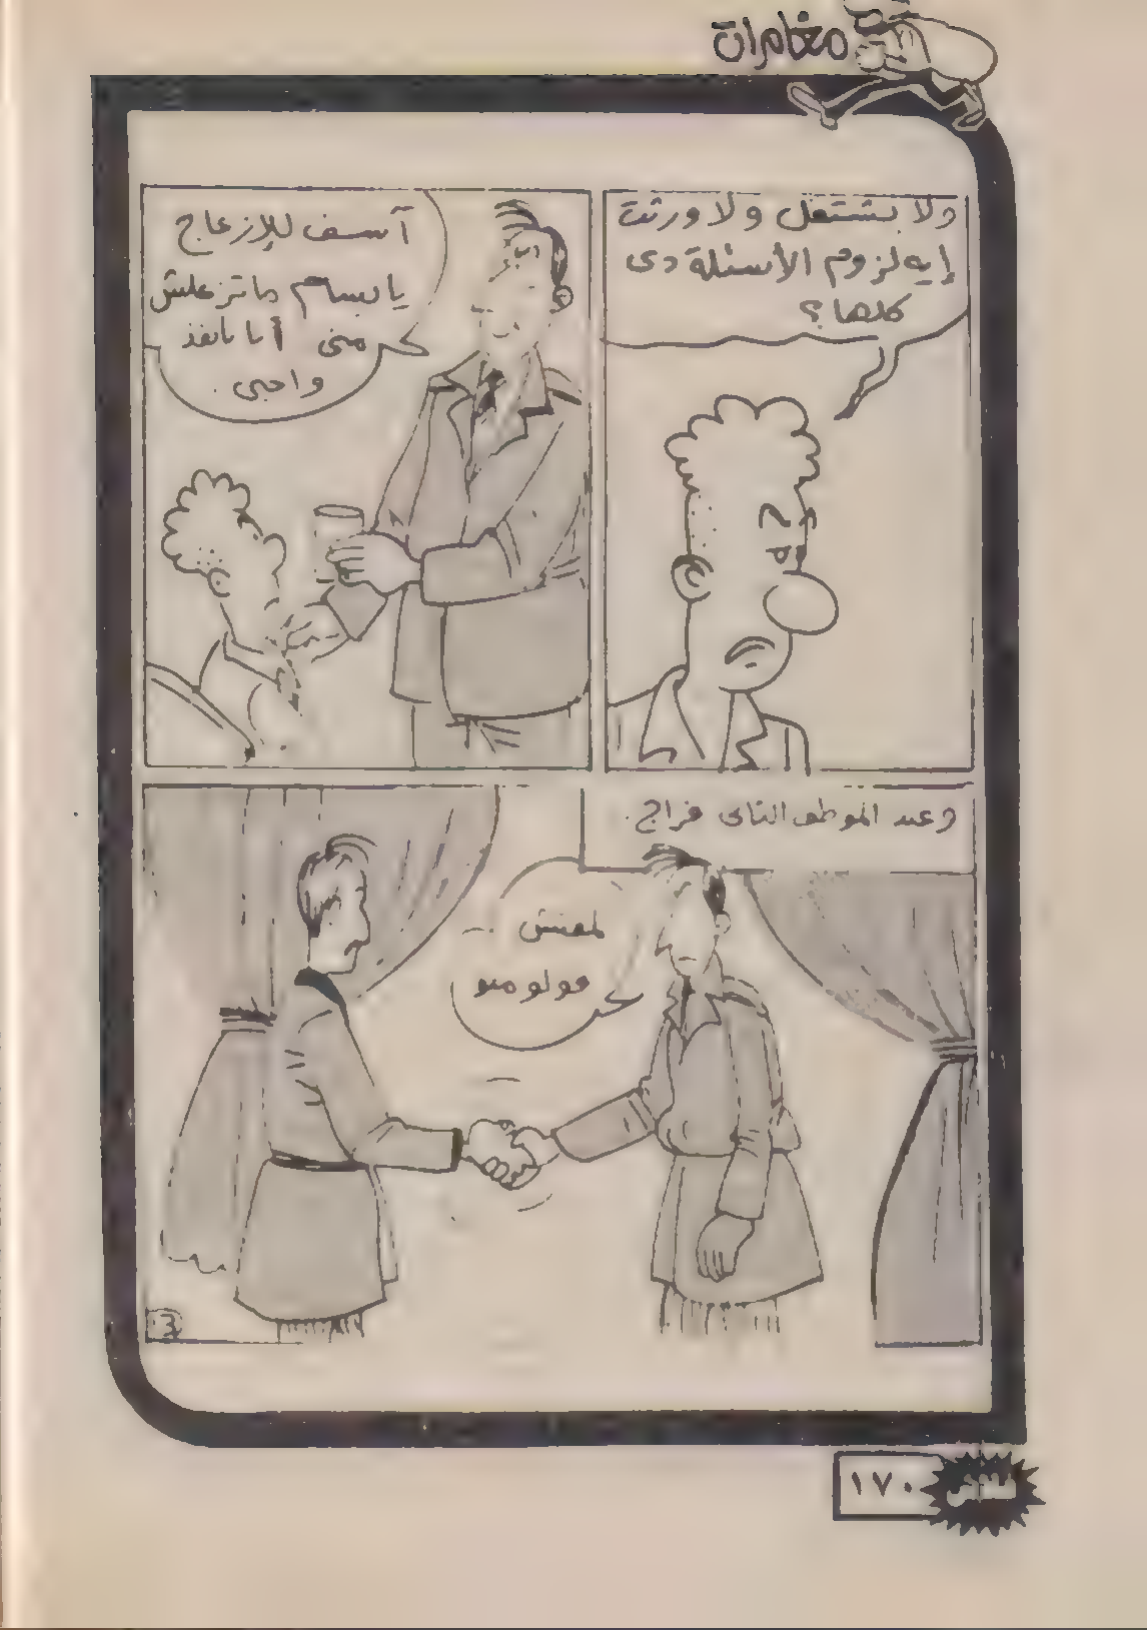 مغامرات
ولا بشتغل ولا ورثت
إيه لزوم الأسئلة دى
كلها؟
آسف للإزعاج
يا بسام ماتزعلش
منى أنا بانفذ
واجبى.
وعند الموظف التانى فراج.
لمفتش
كولومبو
3
١٧٠